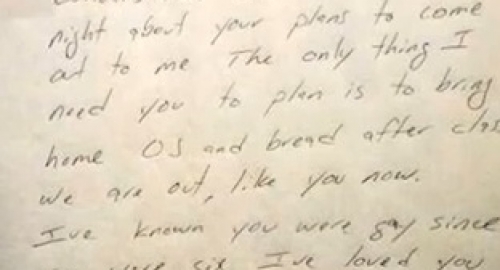 night about your plans to come
out to me The only thing I
need you to plan is to bring
home OJ and bread after clas
We are out, like you now.
I've known you were gay since
were six I've loved you